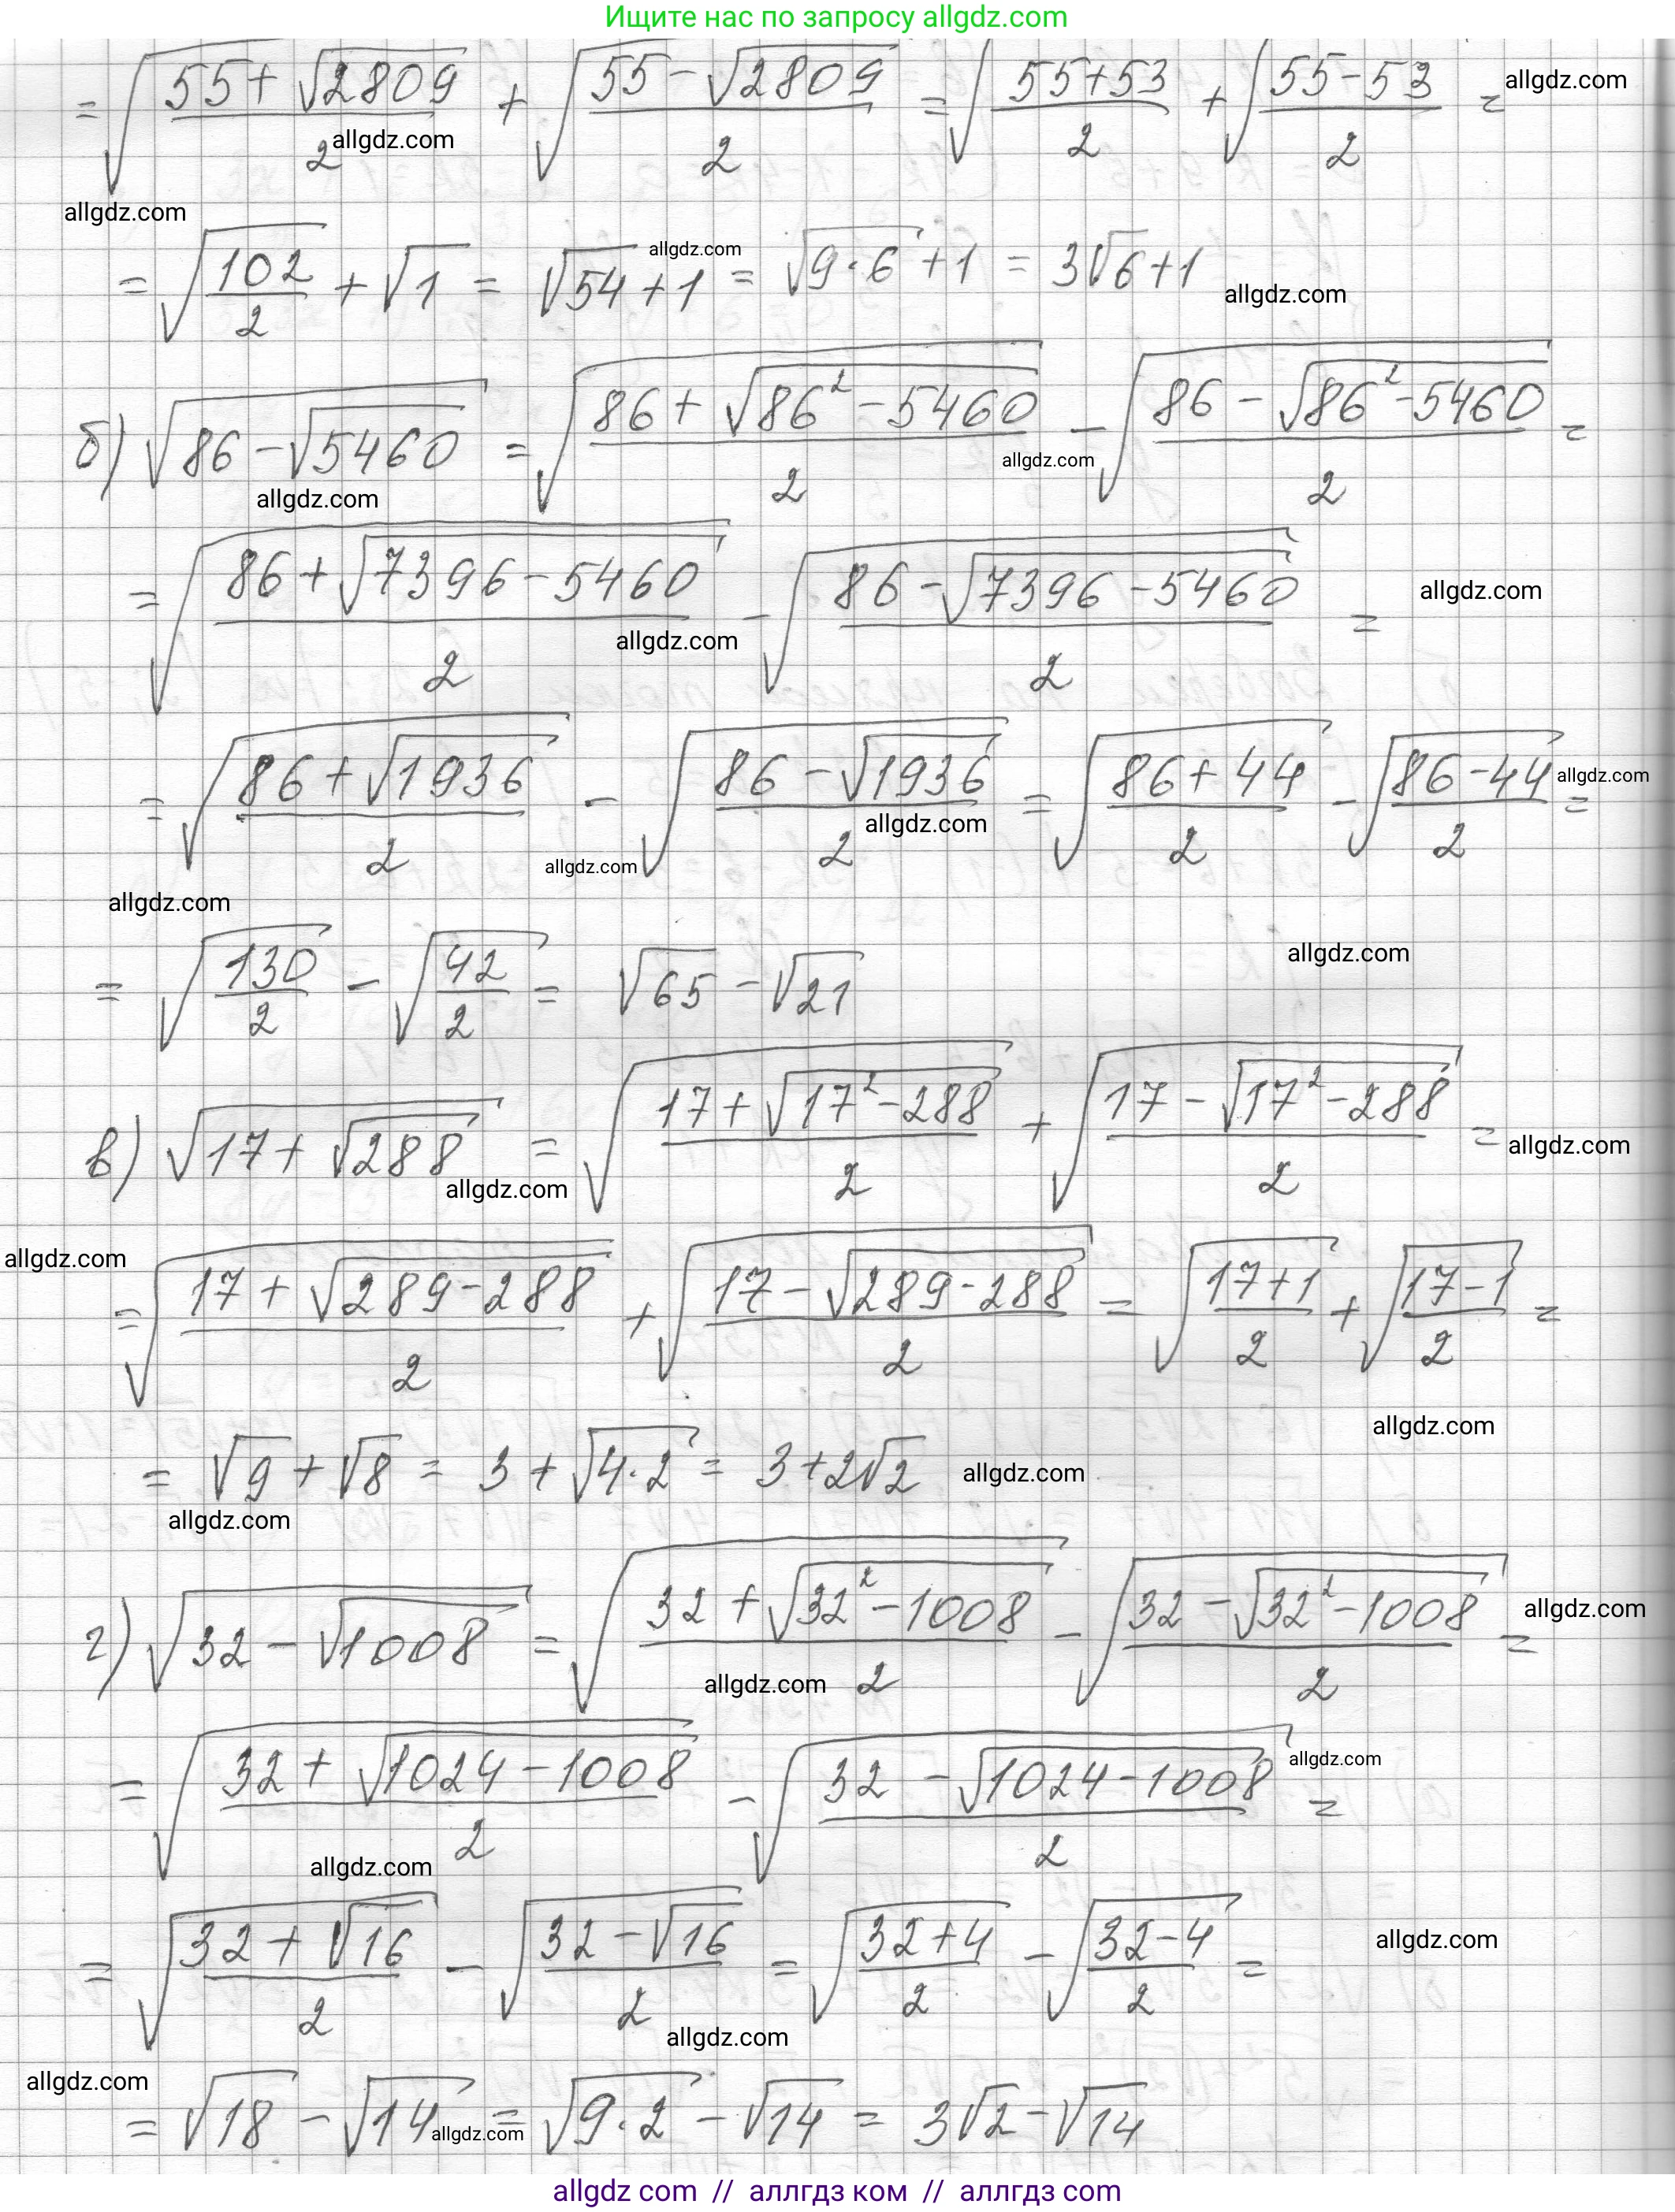 Ищите нас по запросу allgdz.com
= √((55+√2809)/2) + √((55-√2809)/2) = √((55+53)/2) + √((55-53)/2) = allgdz.com
allgdz.com
allgdz.com
= √(102/2) + √1 = √54 + 1 = √(9·6) + 1 = 3√6 + 1
allgdz.com
allgdz.com
б) √(86-√5460) = √((86+√(86²-5460))/2) - √((86-√(86²-5460))/2) =
allgdz.com
allgdz.com
= √((86+√(7396-5460))/2) - √((86-√(7396-5460))/2) =
allgdz.com
allgdz.com
= √((86+√1936)/2) - √((86-√1936)/2) = √((86+44)/2) - √((86-44)/2) =
allgdz.com
allgdz.com
allgdz.com
allgdz.com
= √(130/2) - √(42/2) = √65 - √21
allgdz.com
в) √(17+√288) = √((17+√(17²-288))/2) + √((17-√(17²-288))/2) =
allgdz.com
allgdz.com
allgdz.com
= √((17+√(289-288))/2) + √((17-√(289-288))/2) = √((17+1)/2) + √((17-1)/2) =
allgdz.com
= √9 + √8 = 3 + √(4·2) = 3 + 2√2
allgdz.com
allgdz.com
г) √(32-√1008) = √((32+√(32²-1008))/2) - √((32-√(32²-1008))/2) =
allgdz.com
allgdz.com
= √((32+√(1024-1008))/2) - √((32-√(1024-1008))/2) =
allgdz.com
allgdz.com
= √((32+√16)/2) - √((32-√16)/2) = √((32+4)/2) - √((32-4)/2) =
allgdz.com
allgdz.com
allgdz.com
= √18 - √14 = √(9·2) - √14 = 3√2 - √14
allgdz.com
allgdz com // аллгдз ком // аллгдз com